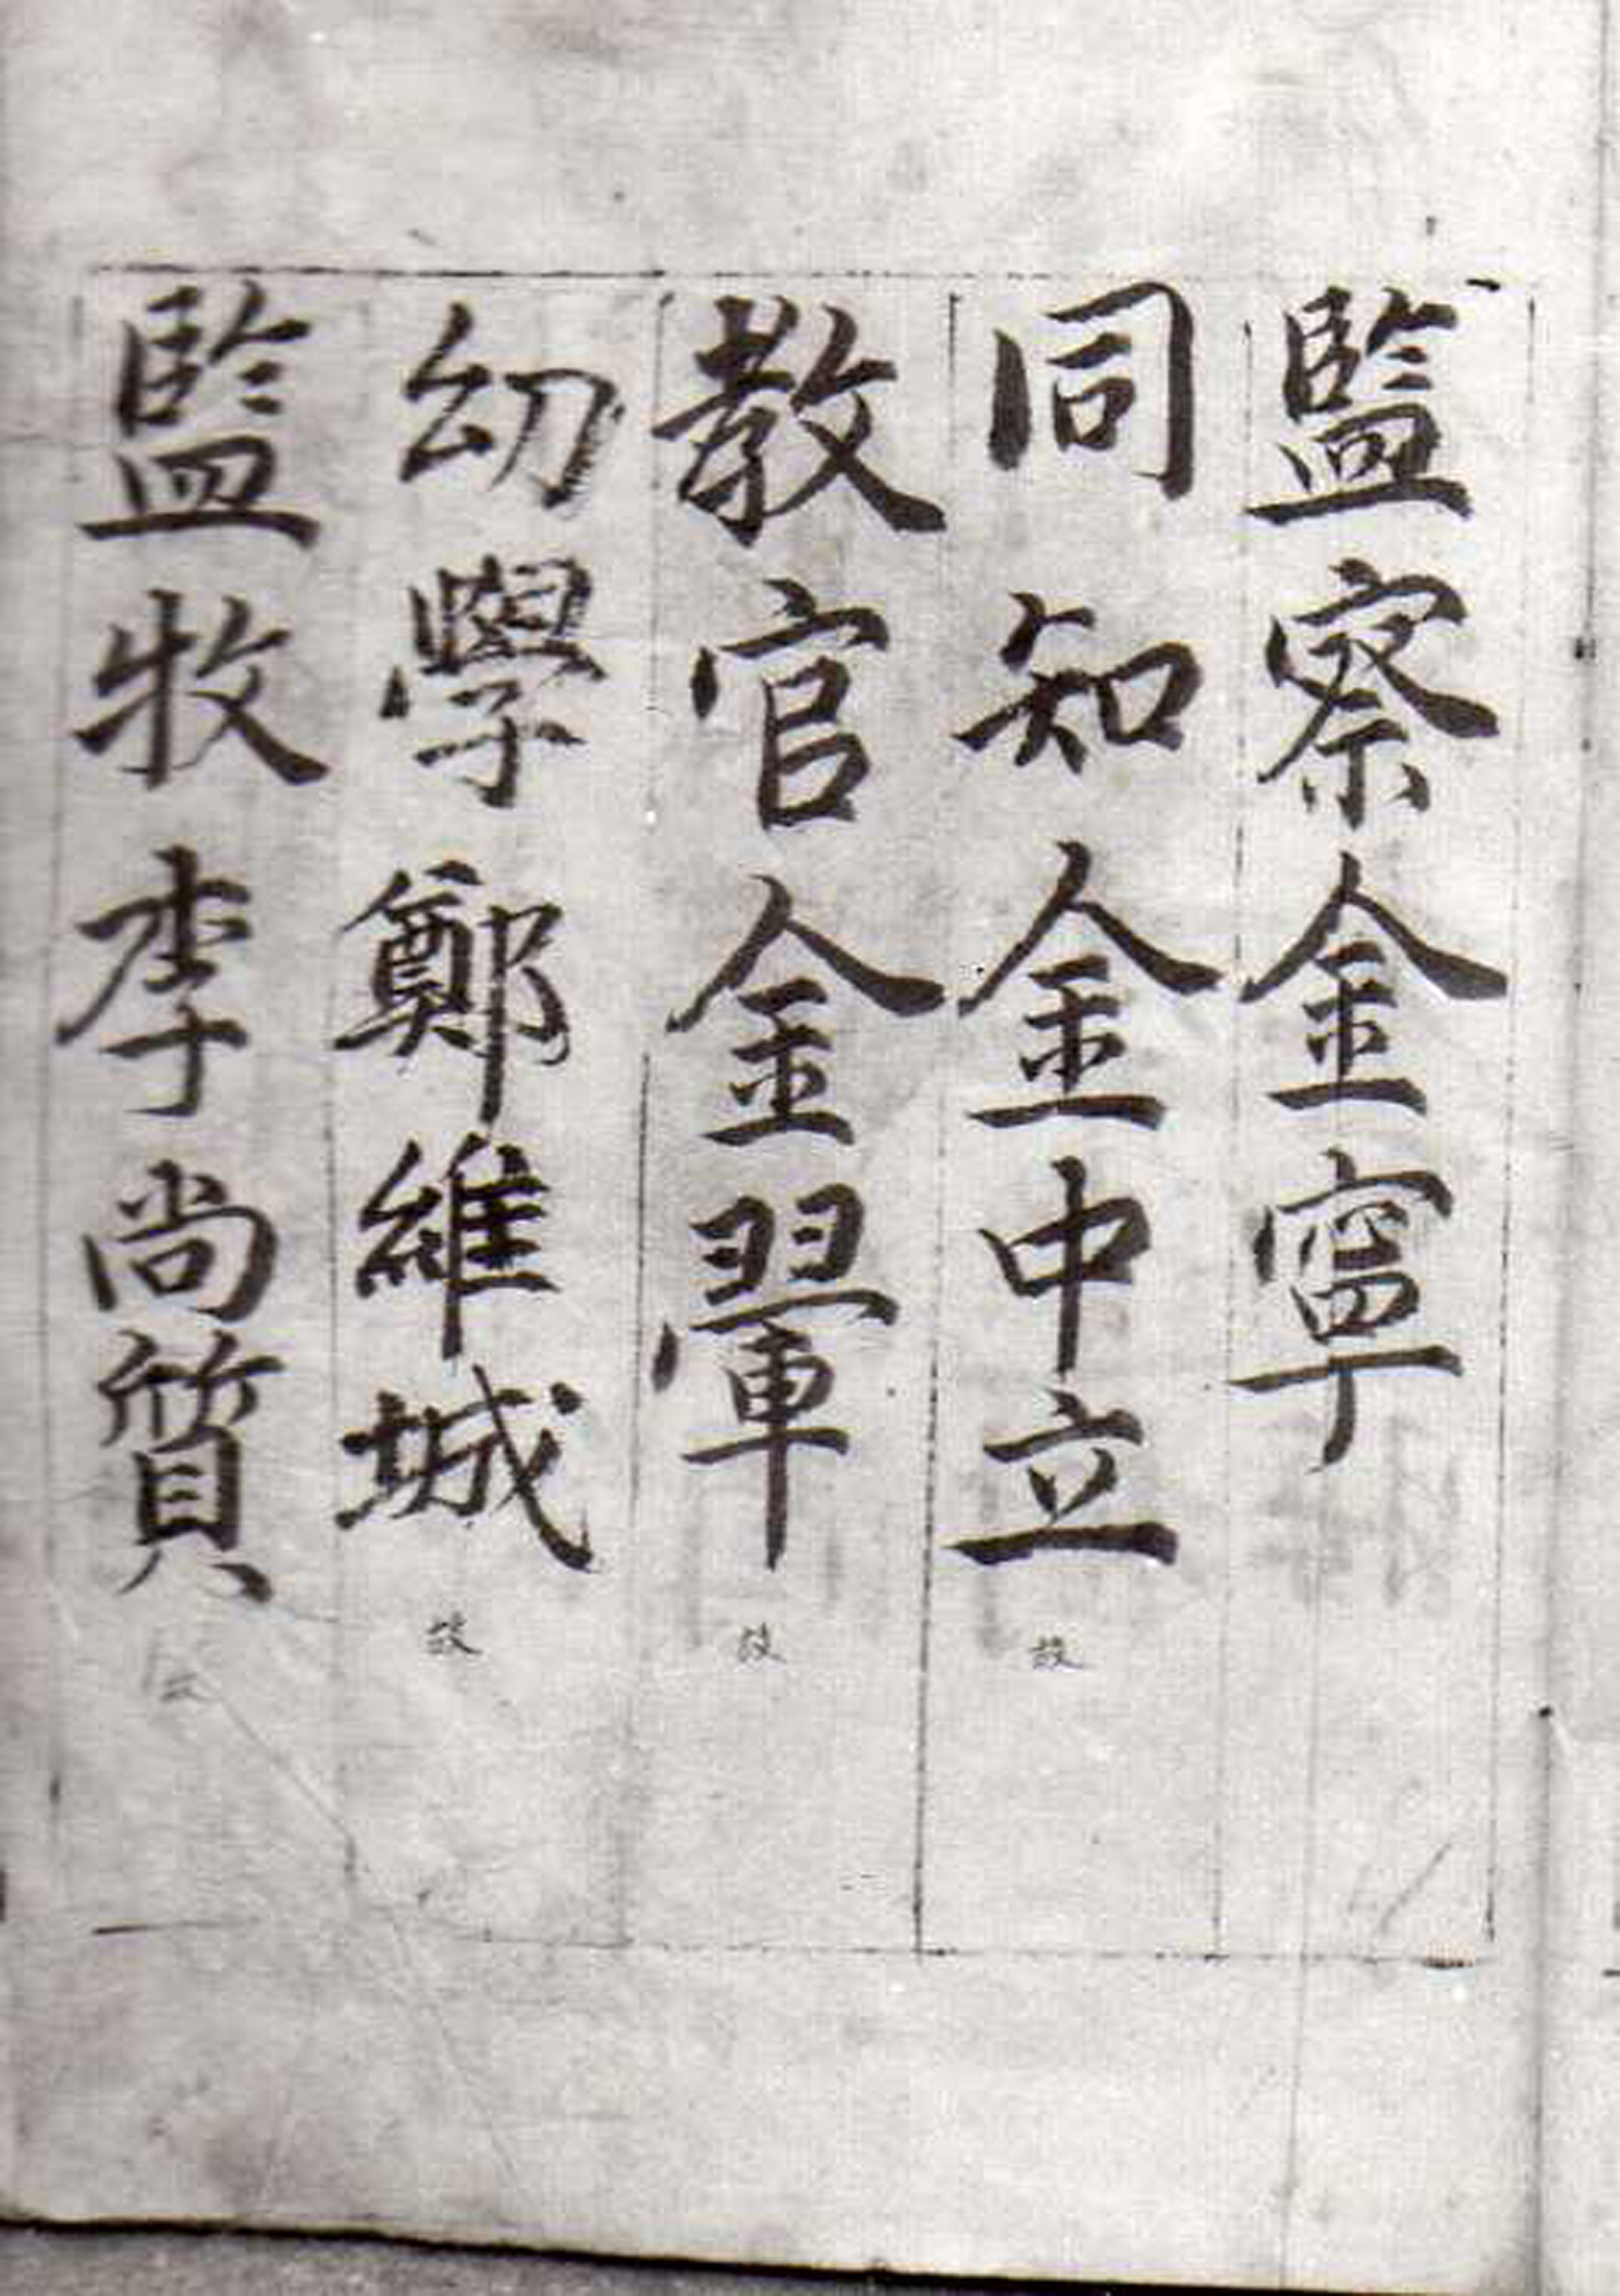 監察金寧
同知金中立 故
教官金翬 故
幼學鄭維城 故
監牧李尚質